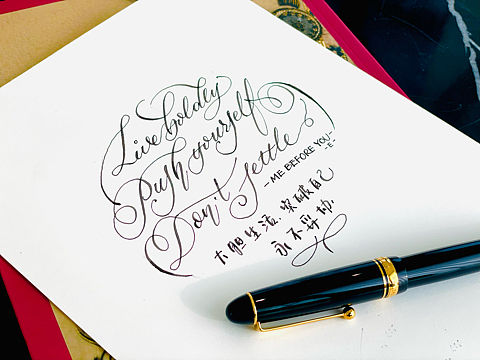 Live boldly
Push yourself
Don't settle
— ME BEFORE YOU —
大胆生活,突破自己
永不妥协.